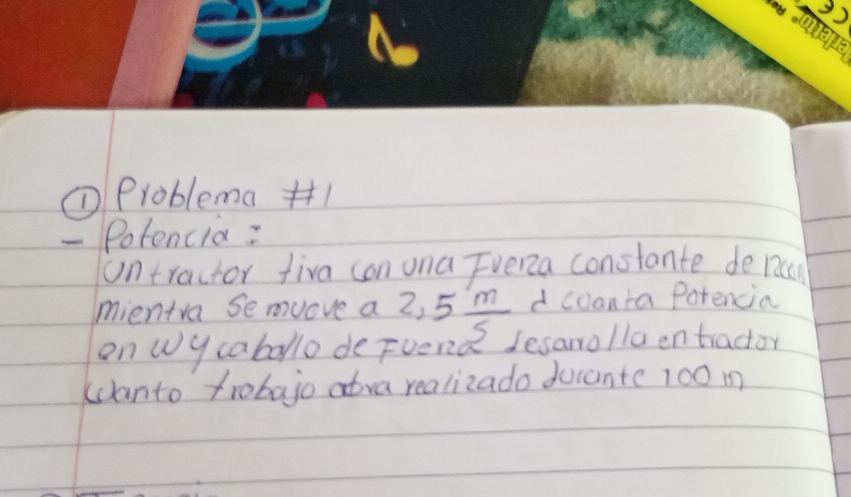 ① Problema #1
- Potencia:
Un tractor tira con una Fuerza constante de
mientra Se mueve a 2,5 m/s ¿ cuanta Potencia
en W y caballo de Fuerza desarrolla en tractor
cuanto trabajo abra realizado durante 100 m